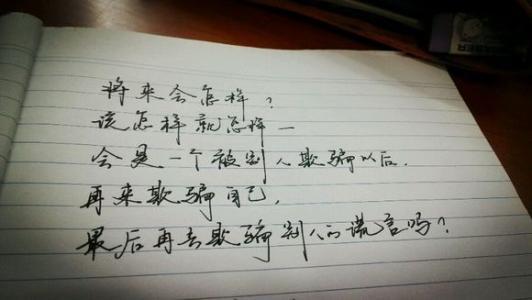 将来会怎样？
该怎样就怎样—
会是一个被别人欺骗以后，
再来欺骗自己，
最后再去欺骗别人的谎言吗？